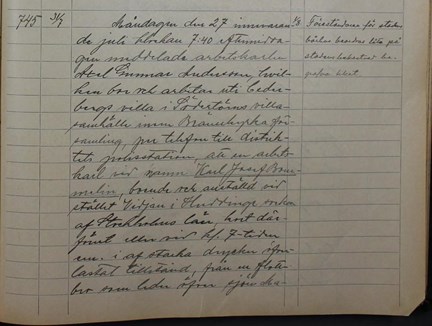 745 31/7 Måndagen den 27 innevaran-
de juli klockan 7:40 eftermidda-
gen meddelade arbetskarlen
Axel Gunnar Andersson, hvil-
ken bor och arbetar uti Ceder-
bergs villa i Södertörns villa-
samhälle inom Brännkyrka för-
samling, per telefon till distrik-
tets polisstation, att en arbets-
karl vid namn Karl Josef
boende och anställd vid
stället Vidjan i Huddinge socken
af Stockholms län, kort där-
förut eller vid kl. 7-tiden
em. i af starka drycker öfver-
lastat tillstånd, från en flott-
bro som leder öfver sjön
Föreståndaren för stads-
på
stadens bekostnad be-